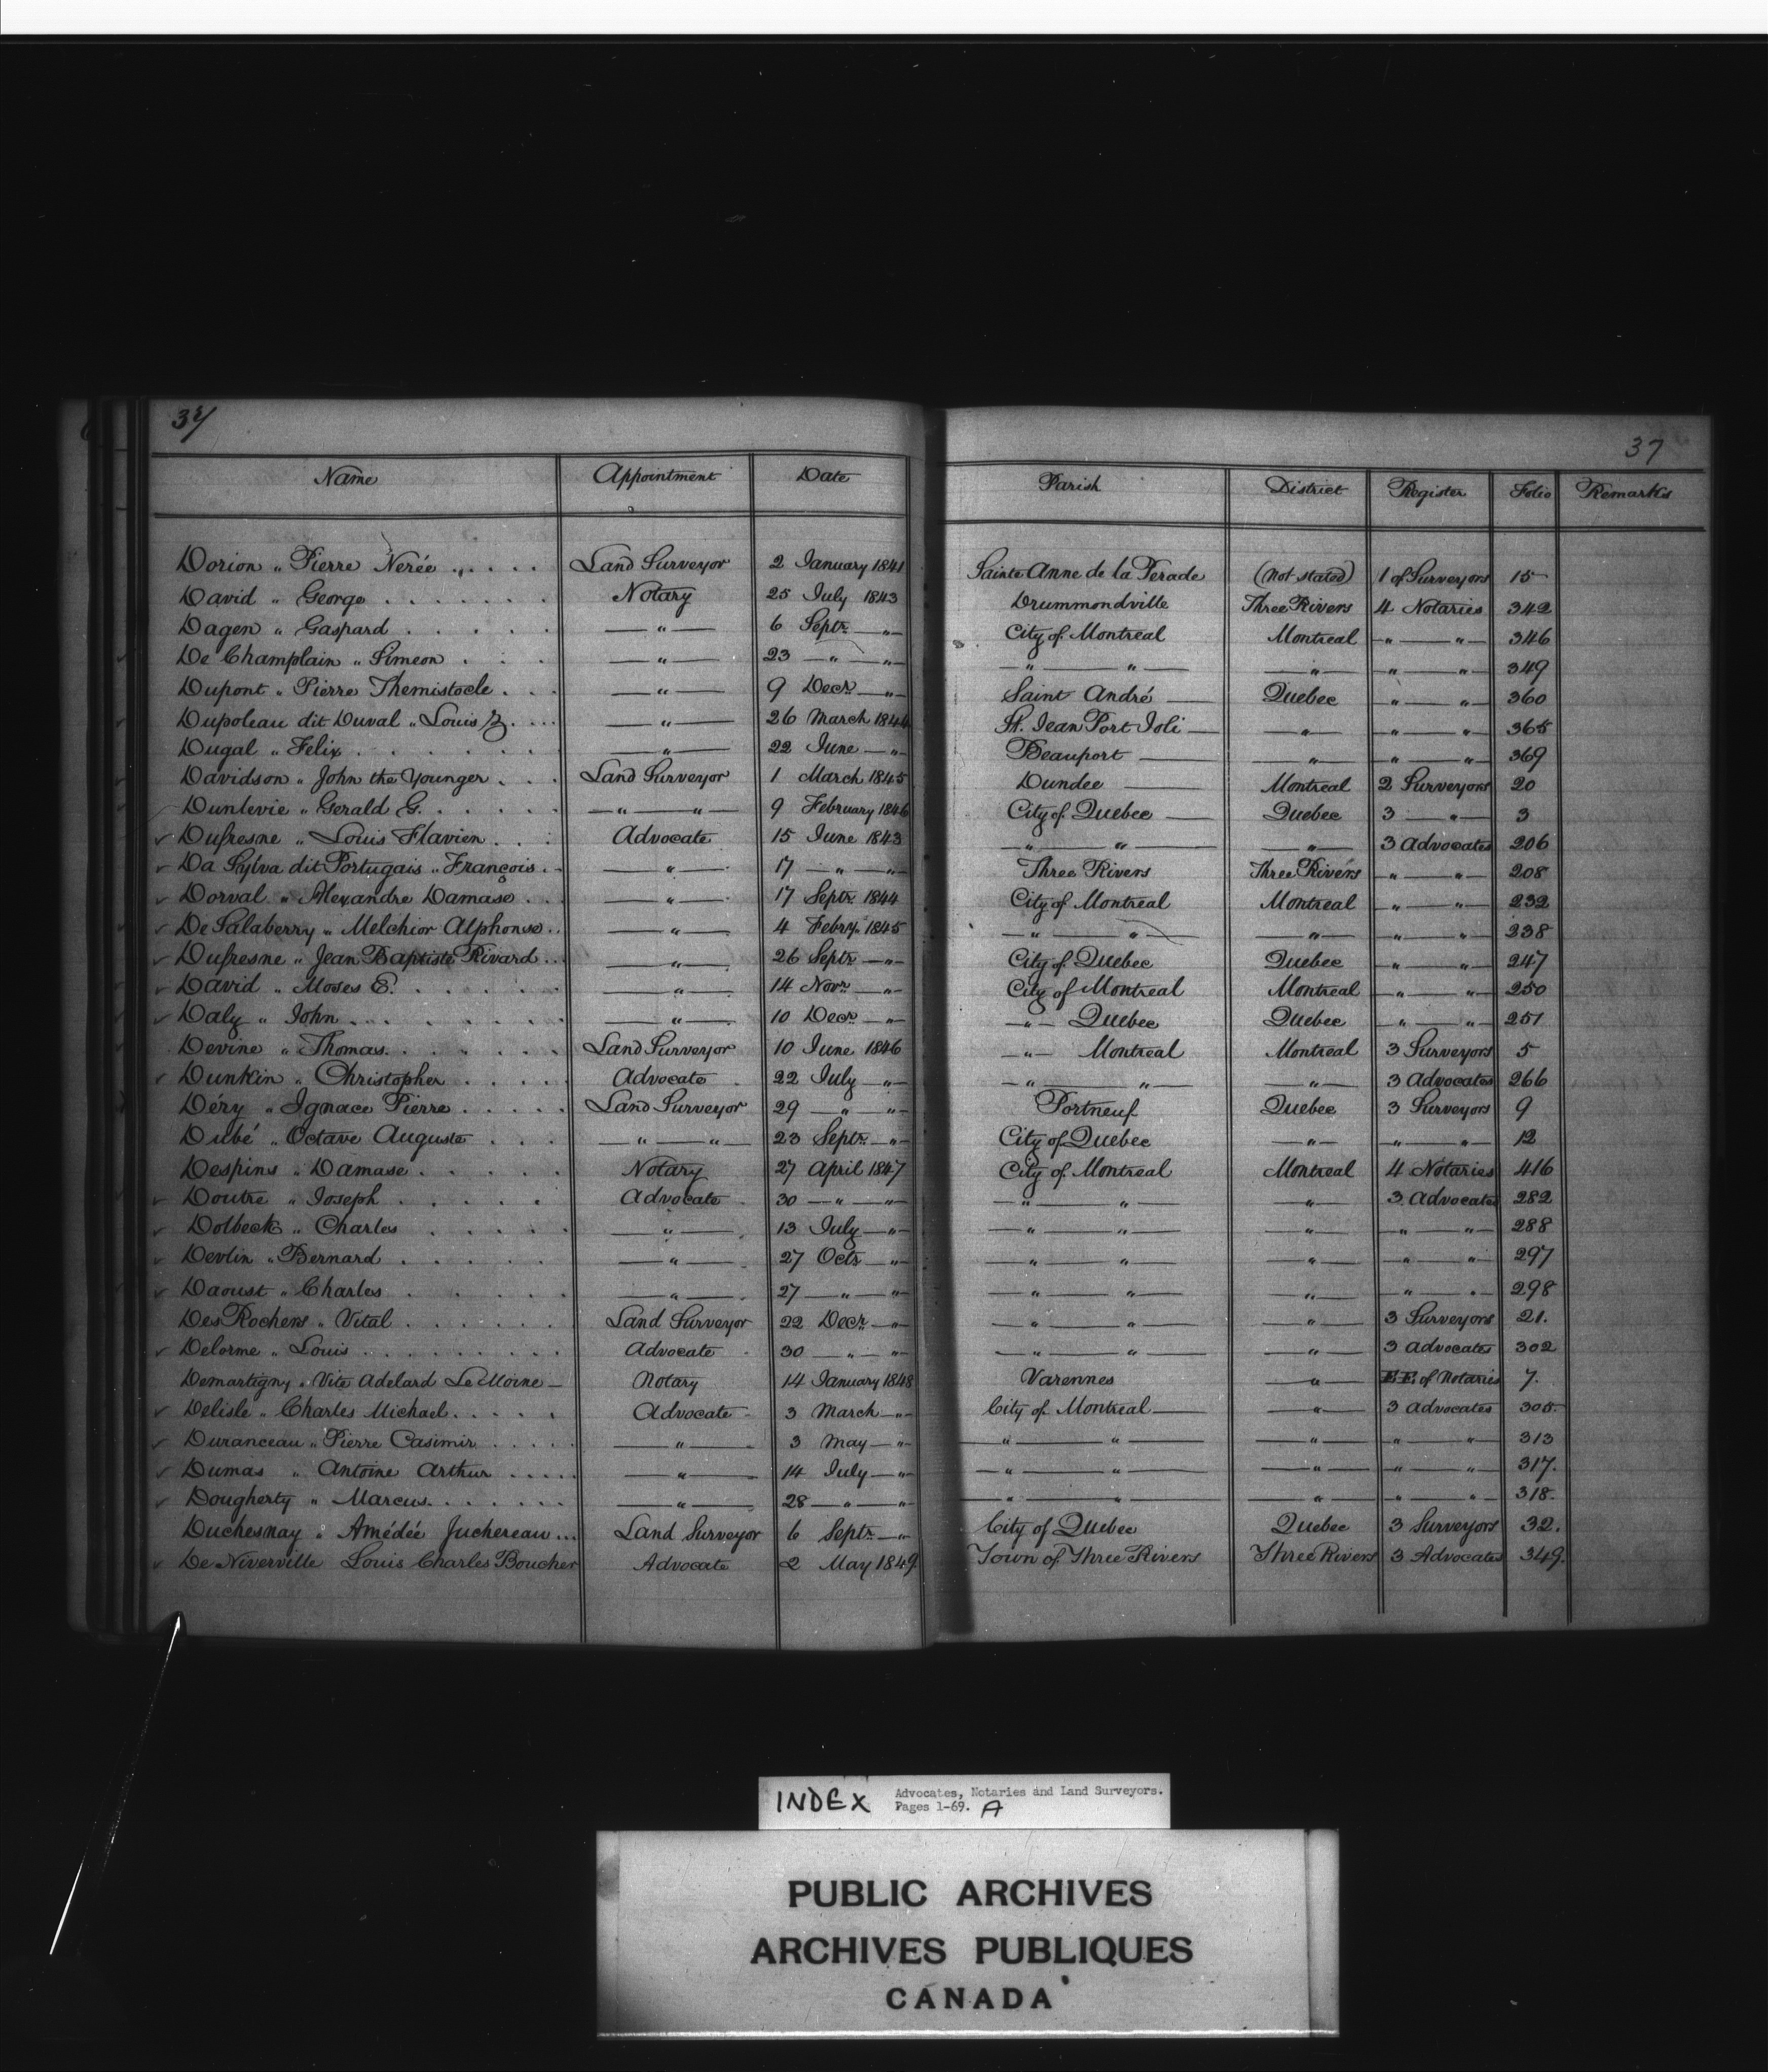 37
Name Appointment Date Parish District Register Folio Remarks
Dorion „ Pierre Nerée . . . . . Land Surveyor 2 January 1841 Sainte Anne de la Perade (Not stated) 1 of Surveyors 15
David „ George . . . . . . . Notary 25 July 1843 Drummondville Three Rivers 4 Notaries 342
Dagen „ Gaspard . . . . . — „ — 6 Septr. — „ — City of Montreal Montreal — „ — „ — 346
De Champlain „ Simeon . . . — „ — 23 — „ — „ — — „ — „ — — „ — — „ — „ — 349
Dupont „ Pierre Themistocle . . . — „ — 9 Decr. — „ — Saint André — Quebec — „ — „ — 360
Dupoleau dit Duval „ Louis Z. . . . — „ — 26 March 1844 St. Jean Port Joli — — „ — — „ — „ — 365
Dugal „ Felix . . . . . . . — „ — 22 June — „ — Beauport — — „ — — „ — „ — 369
Davidson „ John the Younger . . . Land Surveyor 1 March 1845 Dundee — Montreal 2 Surveyors 20
Dunlevie „ Gerald G. . . . . . — „ — „ — 9 February 1846 City of Quebec — Quebec 3 — „ — 3
Dufresne „ Louis Flavien . . . Advocate 15 June 1843 — „ — „ — — „ — 3 Advocates 206
Da Sylva dit Portugais „ François . . — „ — 17 — „ — „ — Three Rivers Three Rivers — „ — „ — 208
Dorval „ Alexandre Damase . . . — „ — 17 Septr. 1844 City of Montreal Montreal — „ — „ — 232
De Salaberry „ Melchior Alphonse . . — „ — 4 Febry. 1845 — „ — „ — — „ — — „ — „ — 238
Dufresne „ Jean Baptiste Rivard . . . — „ — 26 Septr. — „ — City of Quebec Quebec — „ — „ — 247
David „ Moses E. . . . . . — „ — 14 Novr. — „ — City of Montreal Montreal — „ — „ — 250
Daly „ John . . . . . . . . — „ — 10 Decr. — „ — — „ — Quebec Quebec — „ — „ — 251
Devine „ Thomas. . . . . . . Land Surveyor 10 June 1846 — „ — Montreal Montreal 3 Surveyors 5
Dunkin „ Christopher . . . . . Advocate 22 July — „ — — „ — „ — — „ — 3 Advocates 266
Déry „ Ignace Pierre . . . . . Land Surveyor 29 — „ — „ — Portneuf Quebec 3 Surveyors 9
Dubé „ Octave Auguste . . . — „ — „ — 23 Septr. — „ — City of Quebec — „ — — „ — „ — 12
Despins „ Damase . . . . . Notary 27 April 1847 City of Montreal Montreal 4 Notaries 416
Doutre „ Joseph . . . . . . Advocate 30 — „ — „ — — „ — „ — — „ — 3 Advocates 282
Dolbeck „ Charles . . . . . — „ — 13 July — „ — — „ — „ — — „ — — „ — „ — 288
Devlin „ Bernard . . . . . — „ — 27 Octr. — „ — — „ — „ — — „ — — „ — „ — 297
Daoust „ Charles . . . . . . — „ — 27 — „ — „ — — „ — „ — — „ — — „ — „ — 298
Des Rochers „ Vital . . . . . . Land Surveyor 22 Decr. — „ — — „ — „ — — „ — 3 Surveyors 21.
Delorme „ Louis . . . . . . . . . Advocate 30 — „ — „ — — „ — „ — — „ — 3 Advocates 302
Demartigny „ Vite Adelard Le Moine — Notary 14 January 1848 Varennes — „ — E.E. of Notaries 7.
Delisle „ Charles Michael. . . . . Advocate 3 March — „ — City of Montreal — — „ — 3 Advocates 305.
Duranceau „ Pierre Casimir . . . . . — „ — 3 May — „ — — „ — „ — — „ — — „ — „ — 313
Dumas „ Antoine Arthur . . . . . — „ — 14 July — „ — — „ — „ — — „ — — „ — „ — 317.
Dougherty „ Marcus. . . . . . . — „ — 28 — „ — „ — — „ — „ — — „ — — „ — „ — 318.
Duchesnay „ Amédée Juchereau . . . Land Surveyor 6 Septr. — „ — City of Quebec Quebec 3 Surveyors 32.
De Niverville Louis Charles Boucher Advocate 2 May 1849. Town of Three Rivers Three Rivers 3 Advocates 349.
INDEX Advocates, Notaries and Land Surveyors.
Pages 1-69. A
PUBLIC ARCHIVES
ARCHIVES PUBLIQUES
CANADA